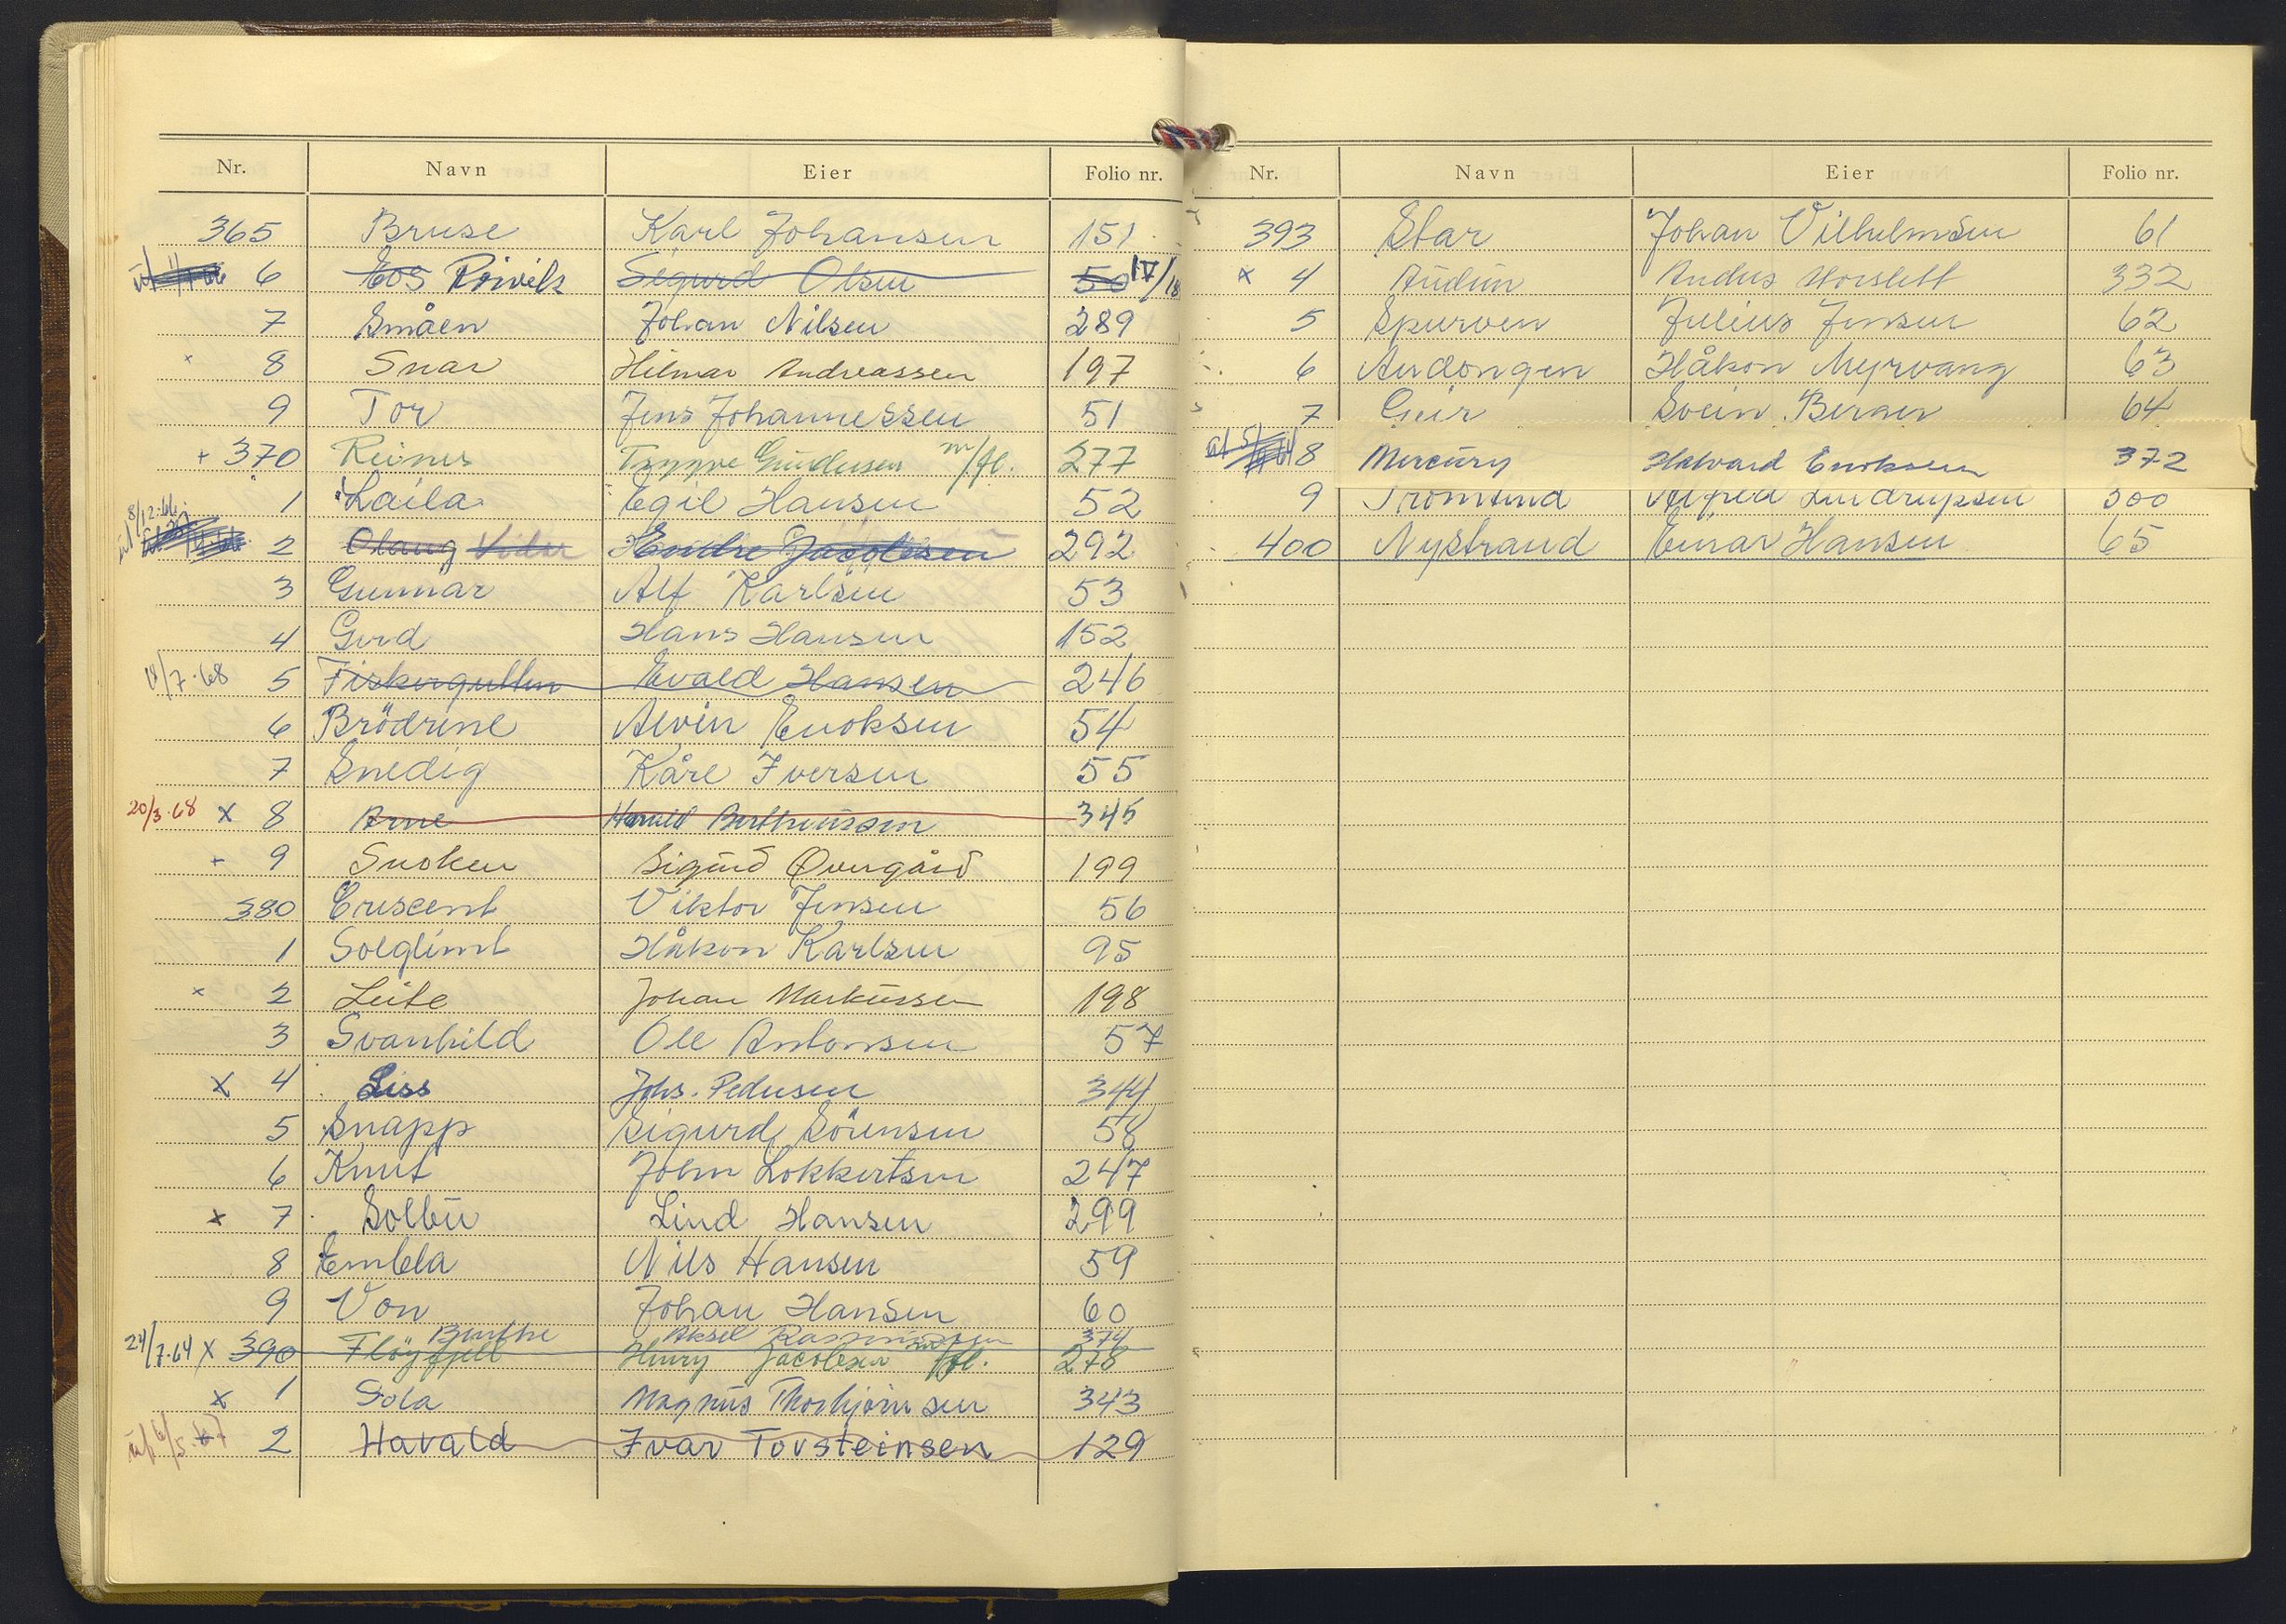 Nr. Navn Eier Folio nr.
365 Bruse Karl Johansen 151
6 Eos Sigurd Olsen 50 IV/18
7 Småen Johan Nilsen 289
x 8 Snar Hilmar Andreassen 197
9 Tor Jens Johannessen 51
+ 370 Reines Trygve Gundersen m/fl. 277
1 Laila Egil Hansen 52
8/12.66
2 Olaug Vidar Endre Jacobsen 292
3 Gunnar Alf Karlsen 53
4 Gerd Hans Hansen 152
18/7.68 5 Fiskergutten Evald Hansen 246
6 Brödrene Alvin Enoksen 54
7 Snedig Kåre Iversen 55
20/3.68 x 8 Arne Harald Bertheussen 345
+ 9 Snoken Sigurd Øvergård 199
380 Crescent Viktor Jensen 56
1 Solglimt Håkon Karlsen 95
x 2 Leite Johan Markussen 198
3 Svanhild Ole Antonsen 57
x 4 Liss Johs. Pedersen 344
5 Snapp Sigurd Sörensen 58
6 Knut John Lokkertsen 247
x 7 Solbu Lind Hansen 299
8 Embla Nils Hansen 59
9 Von Johan Hansen 60
Aksel Rasmussen 374
24/7.64 x 390 Flöyfjell Henry Jacobsen m/fl. 278
x 1 Sola Magnus Thorbjörnsen 343
ut 6/5.67 2 Havald Ivar Torsteinsen 129
Nr. Navn Eier Folio nr.
393 Star Johan Vilhelmsen 61
x 4 Audun Anders Horslett 332
5 Spurven Julius Jensen 62
6 Audongen Håkon Myrvang 63
7 Geir Svein Berger 64
8 Mercury Halvard Enoksen 372
9 Tromtind Alfred Lindrupsen 300
400 Nystrand Einar Hansen 65